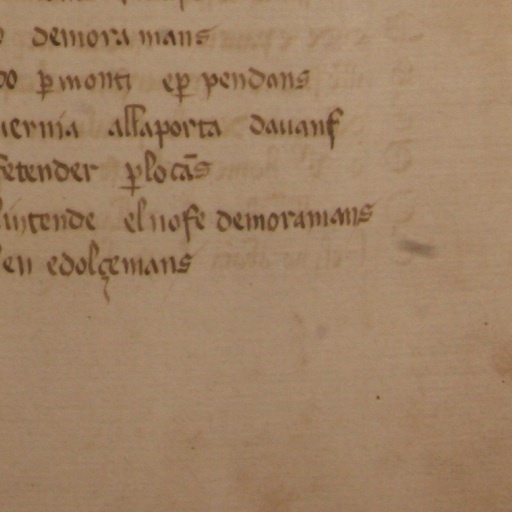 demora mans
ꝑ monti eꝑ pendans
uernia allaporta dauanſ
ſetender ꝑlocãs
intende elnoſe demoramans
en edolçemans